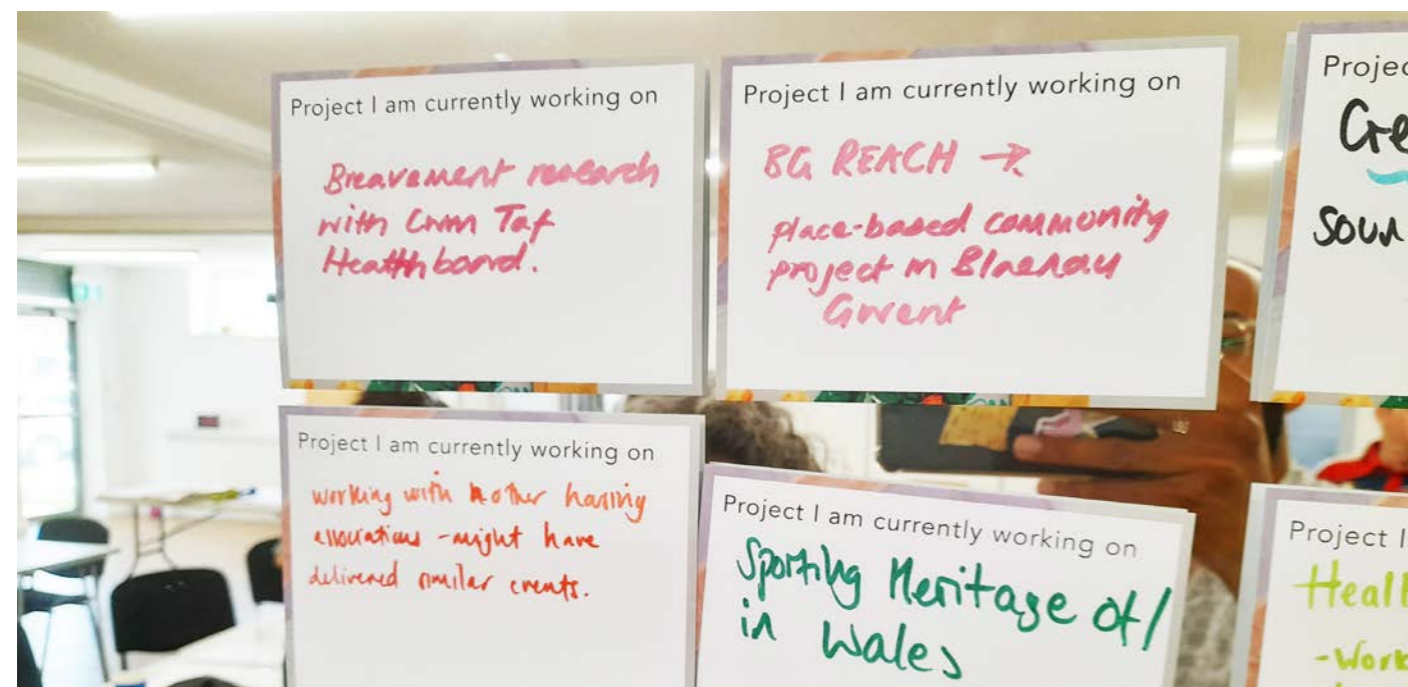 Project I am currently working on
Breavement research
with Cwm Taf
Health board.
Project I am currently working on
BG REACH →
place-based community
project in Blaenau
Gwent
Projec
Cre
Soun
Project I am currently working on
working with other housing
associations - might have
delivered similar events.
Project I am currently working on
Sporting Heritage of/
in Wales
Project I
Healt
-Work